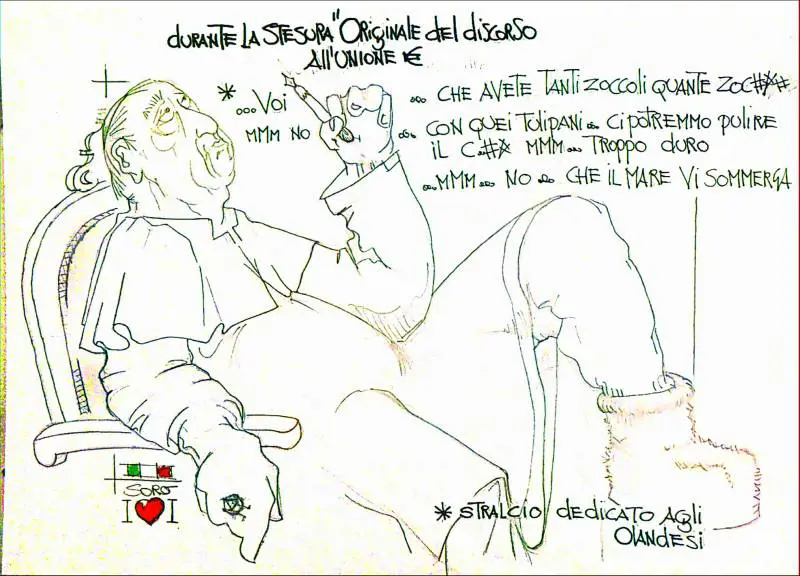 DURANTE LA STESURA "ORIGINALE DEL DISCORSO
ALL'UNIONE €
* ...VOI
MMM NO
... CHE AVETE TANTI ZOCCOLI QUANTE ZOC###
... CON QUEI TULIPANI... CI POTREMMO PULIRE
IL C.## MMM... TROPPO DURO
...MMM... NO... CHE IL MARE VI SOMMERGA
SORO
I ❤ I
* STRALCIO DEDICATO AGLI
OLANDESI